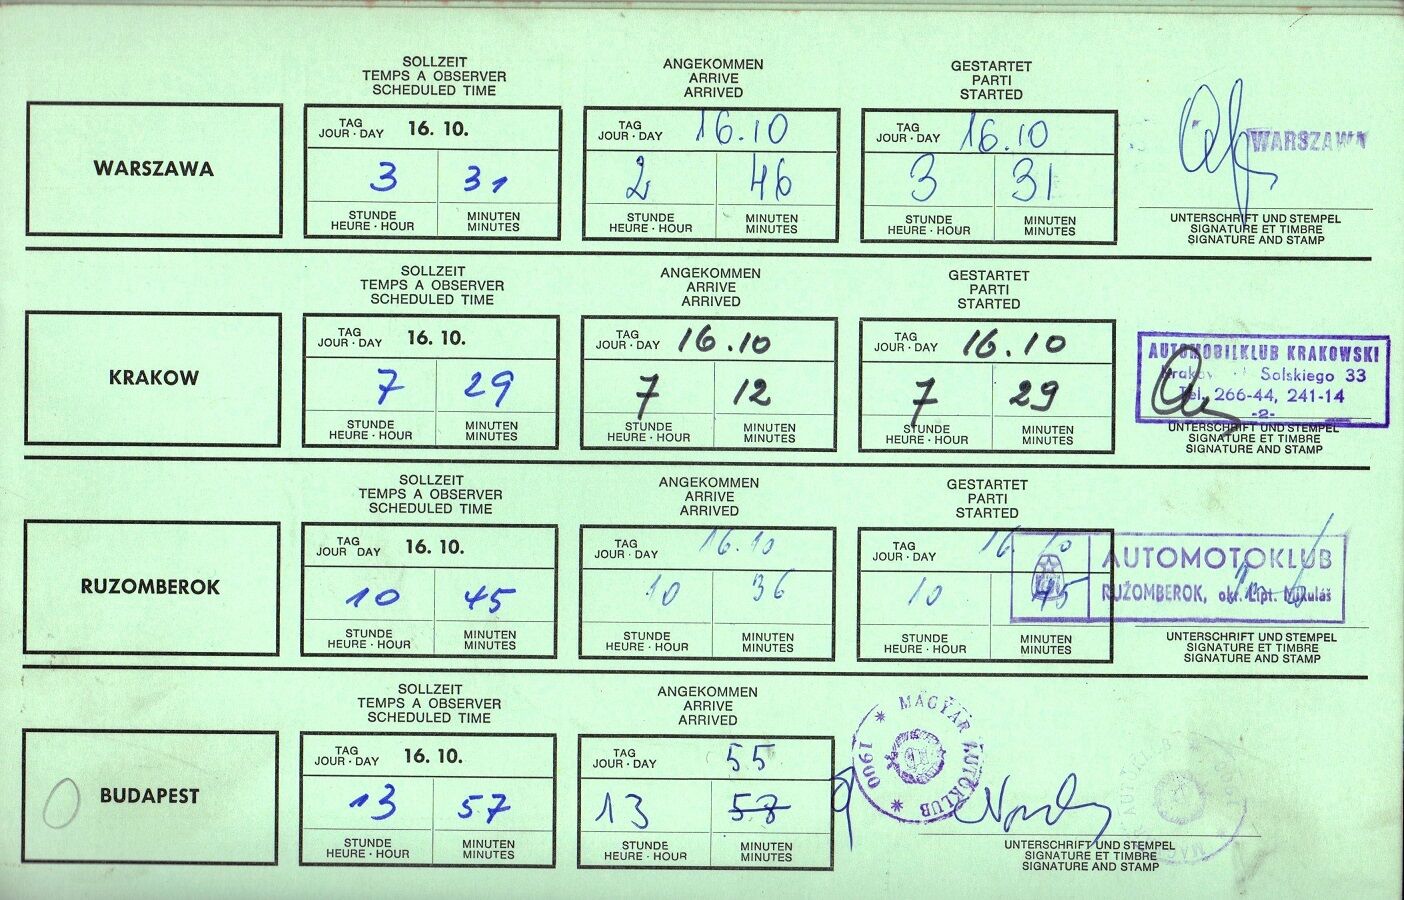 SOLLZEIT
TEMPS A OBSERVER
SCHEDULED TIME
ANGEKOMMEN
ARRIVE
ARRIVED
GESTARTET
PARTI
STARTED
WARSZAWA
TAG
JOUR · DAY 16. 10.
3 31
STUNDE
HEURE · HOUR
MINUTEN
MINUTES
TAG
JOUR · DAY 16.10
2 46
STUNDE
HEURE · HOUR
MINUTEN
MINUTES
TAG
JOUR · DAY 16.10
3 31
STUNDE
HEURE · HOUR
MINUTEN
MINUTES
WARSZAWA
UNTERSCHRIFT UND STEMPEL
SIGNATURE ET TIMBRE
SIGNATURE AND STAMP
SOLLZEIT
TEMPS A OBSERVER
SCHEDULED TIME
ANGEKOMMEN
ARRIVE
ARRIVED
GESTARTET
PARTI
STARTED
KRAKOW
TAG
JOUR · DAY 16. 10.
7 29
STUNDE
HEURE · HOUR
MINUTEN
MINUTES
TAG
JOUR · DAY 16.10
7 12
STUNDE
HEURE · HOUR
MINUTEN
MINUTES
TAG
JOUR · DAY 16.10
7 29
STUNDE
HEURE · HOUR
MINUTEN
MINUTES
AUTOMOBILKLUB KRAKOWSKI
Solskiego 33
Tel. 266-44, 241-14
-2-
UNTERSCHRIFT UND STEMPEL
SIGNATURE ET TIMBRE
SIGNATURE AND STAMP
SOLLZEIT
TEMPS A OBSERVER
SCHEDULED TIME
ANGEKOMMEN
ARRIVE
ARRIVED
GESTARTET
PARTI
STARTED
RUZOMBEROK
TAG
JOUR DAY 16. 10.
10 45
STUNDE
HEURE · HOUR
MINUTEN
MINUTES
TAG
JOUR · DAY 16.10
10 36
STUNDE
HEURE · HOUR
MINUTEN
MINUTES
TAG
JOUR · DAY 16. 10
10 45
STUNDE
HEURE · HOUR
MINUTEN
MINUTES
AUTOMOTOKLUB
RUŽOMBEROK, okr. Lipt. Mikuláš
UNTERSCHRIFT UND STEMPEL
SIGNATURE ET TIMBRE
SIGNATURE AND STAMP
SOLLZEIT
TEMPS A OBSERVER
SCHEDULED TIME
ANGEKOMMEN
ARRIVE
ARRIVED
BUDAPEST
TAG
JOUR · DAY 16. 10.
13 57
STUNDE
HEURE · HOUR
MINUTEN
MINUTES
TAG
JOUR · DAY 55
13 58
STUNDE
HEURE · HOUR
MINUTEN
MINUTES
* MAGYAR AUTÓKLUB * 1900
UNTERSCHRIFT UND STEMPEL
SIGNATURE ET TIMBRE
SIGNATURE AND STAMP